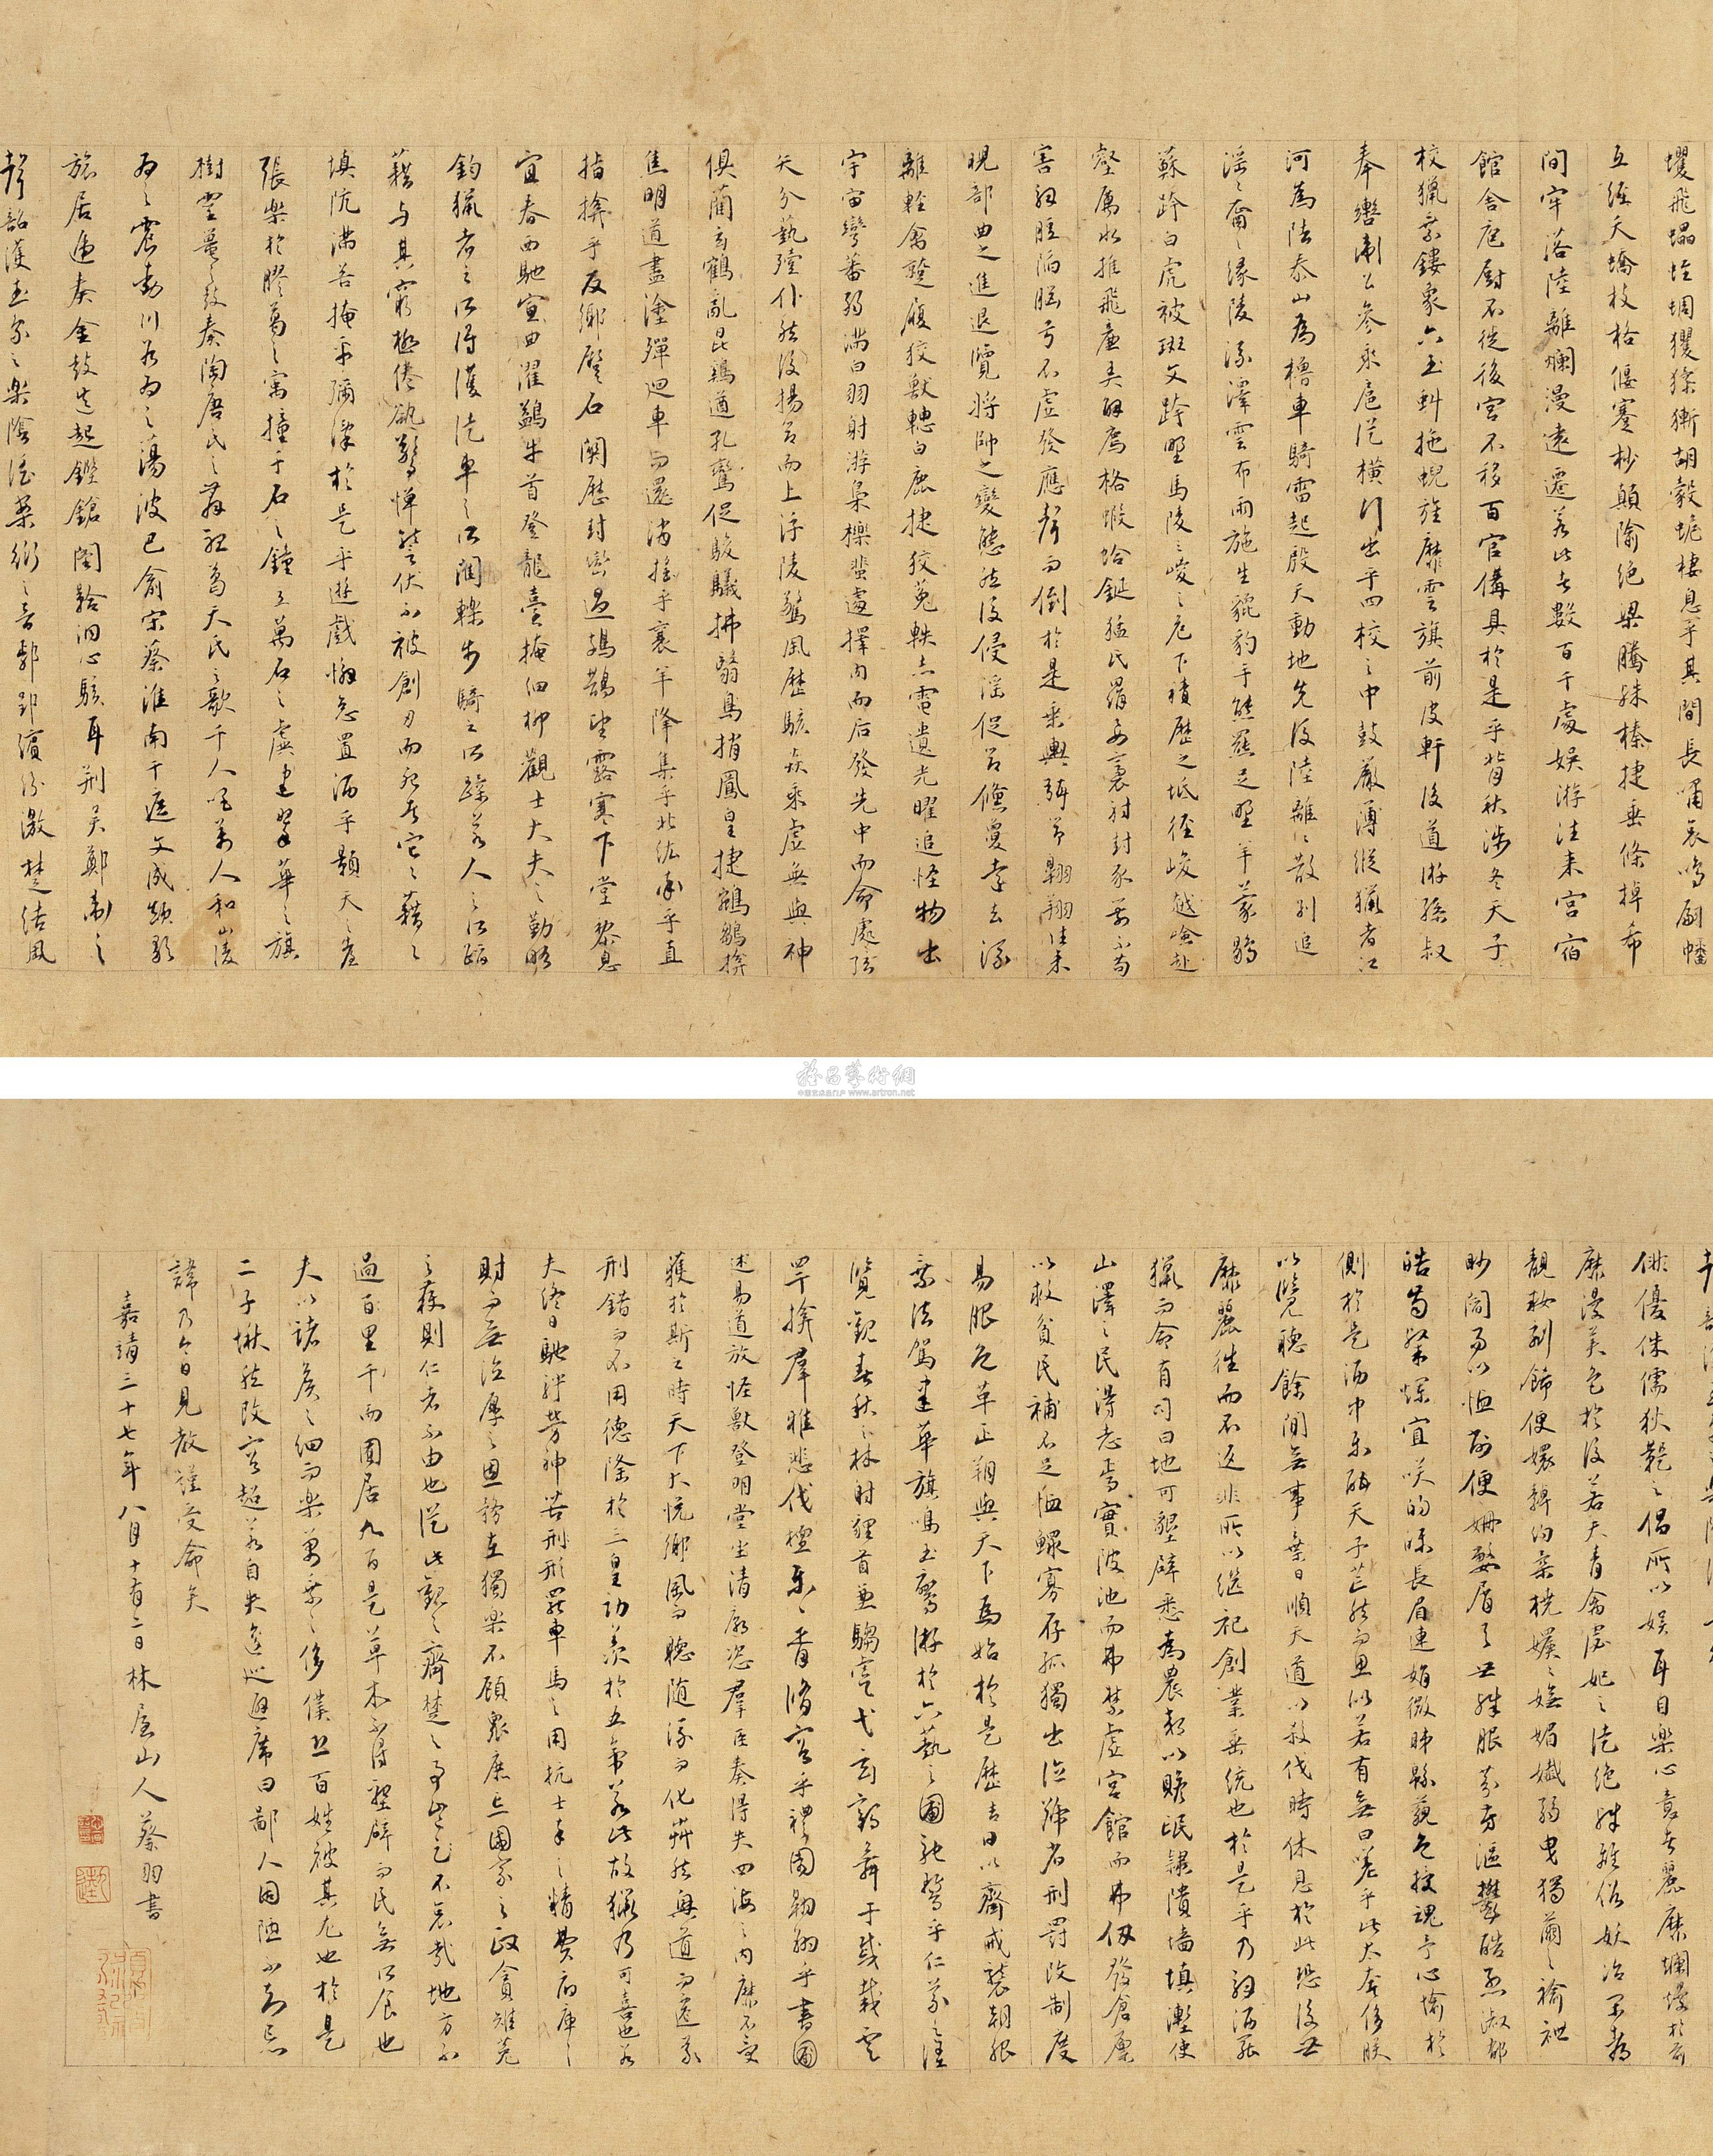 玃飛蠝蛭蜩玃猱獑胡縠蛫棲息乎其間長嘯哀鳴翩幡
互經夭蟜枝格偃蹇杪顛隃絕梁騰殊榛捷垂條掉希
間牢落陸離爛漫遠遷若此者數百千處娛游往來宮宿
館舍庖廚不徙後宮不移百官備具於是乎背秋涉冬天子
校獵乘鏤象六玉虯拖蜺旌靡雲旗前皮軒後道游孫叔
奉轡衛公參乘扈從橫行出乎四校之中鼓嚴薄縱獵者江
河為阹泰山為櫓車騎雷起殷天動地先後陸離離散別追
淫淫裔裔緣陵流澤雲布雨施生貔豹手熊羆足野羊蒙鶡
蘇跨白虎被斑文跨野馬陵三嵏之危下磧歷之坻徑峻越嶮赴
壑厲水推飛廉弄解廌格蝦蛤鋋猛氏羂要褭射封豕箭不苟
害解脰陷腦弓不虛發應聲而倒於是乘輿弭節翱翔往來
睨部曲之進退覽將帥之變態然後侵淫促節儵夐遠去流
離輕禽蹵履狡獸轊白鹿捷狡菟軼赤電遺光曜追怪物出
宇宙彎蕃弱滿白羽射游梟櫟蜚遽擇肉而后發先中而命處弦
矢分藝殪仆然後揚節而上浮陵驚風歷駭猋乘虛無與神
俱藺玄鶴亂昆雞遒孔鸞促鵔鸃拂翳鳥捎鳳皇捷鵷鶵揜
焦明道盡塗殫迴車而還消搖乎襄羊降集乎北紘率乎直
指揜乎反鄉蹷石闕歷封巒過鳷鵲望露寒下堂黎息
宜春西馳宣曲濯鷁牛首登龍臺掩細柳觀士大夫之勤略
鈞獵者之所得獲徒車之所閵轢步騎之所蹂若人之所蹈
藉與其窮極倦𠊧驚憚讋伏不被創刃而死者它它藉藉
填阬滿谷掩平彌澤於是乎遊戲懈怠置酒乎顥天之臺
張樂於膠葛之寓撞千石之鐘立萬石之虡建翠華之旗
樹靈鼉之鼓奏陶唐氏之舞聽葛天氏之歌千人唱萬人和山陵
為之震動川谷為之蕩波巴俞宋蔡淮南干遮文成顛歌
族居遞奏金鼓迭起鏗鎗闛鞈洞心駭耳荊吳鄭衛之
聲韶濩武象之樂陰淫案衍之音鄢郢繽紛激楚結風
俳優侏儒狄鞮之倡所以娛耳目樂心意者麗靡爛熳於前
靡漫美色於後若夫青禽宓妃之徒絕殊離俗妖冶閑都
靚妝刻飾便嬛綽約柔橈嬛嬛嫵媚孅弱曳獨繭之褕袘
眇閻易以恤削便姍嫳屑與世殊服芬芳漚鬱酷烈淑郁
皓齒粲爛宜笑的皪長眉連娟微睇緜藐色授魂予心愉於
側於是酒中樂酣天子芒然而思似若有無曰嗟乎此大奢侈朕
以覽聽餘間無事棄日順天道以殺伐時休息於此恐後世
靡麗往而不返非所以繼祀創業垂統也於是乎乃解酒罷
獵而命有司曰地可墾辟悉為農郊以贍氓隸隤墻填壍使
山澤之民得志焉實陂池而弗禁虛宮館而弗仞發倉廩
以救貧民補不足恤鰥寡存孤獨出德號省刑罰改制度
易服色革正朔與天下為始於是歷吉日以齋戒襲朝服
乘法駕建華旗鳴玉鸞游於六藝之囿馳騖乎仁義之塗
覽觀春秋之林射貍首兼騶虞弋玄鶴舞干戚載雲
罕揜群雅悲伐檀樂樂胥修容乎禮園翱翔乎書圃
述易道放怪獸登明堂坐清廟恣群臣奏得失四海之內靡不受
獲於斯之時天下大悅鄉風而聽隨流而化芔然興道而遷義
刑錯而不用德隆於三皇功羨於五帝若此故獵乃可喜也若
夫終日馳騁勞神苦形罷車馬之用抏士卒之精費府庫之
財而無德厚之恩務在獨樂不顧眾庶亡國家之政貪雉菟
之獲則仁者不由也從此觀之齊楚之事豈不哀哉地方不
過百里千而囿居九百是草木不得墾辟而民無所食也
夫以諸侯之細而樂萬乘之侈僕恐百姓被其尤也於是
二子愀然改容超若自失逡巡避席曰鄙人固陋不知忌
諱乃今日見教謹受命矣
嘉靖三十七年八月十有二日林屋山人蔡羽書